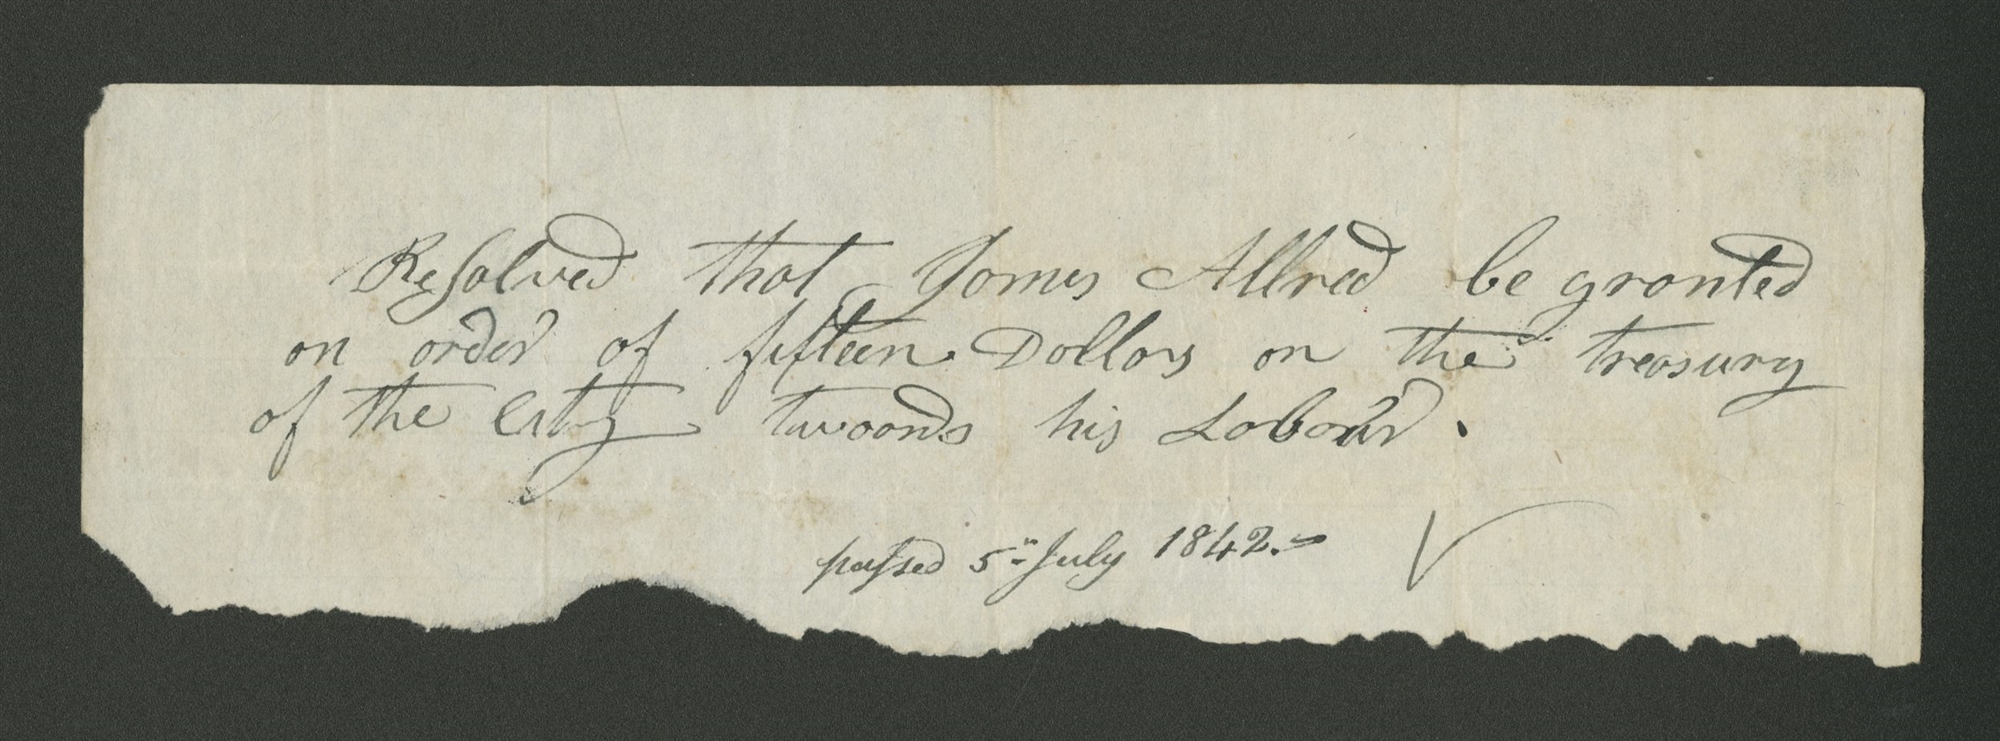 Resolved that James Allred be granted
an order of fifteen Dollars on the treasury
of the City twoards his Labour.
passed 5th July 1842.